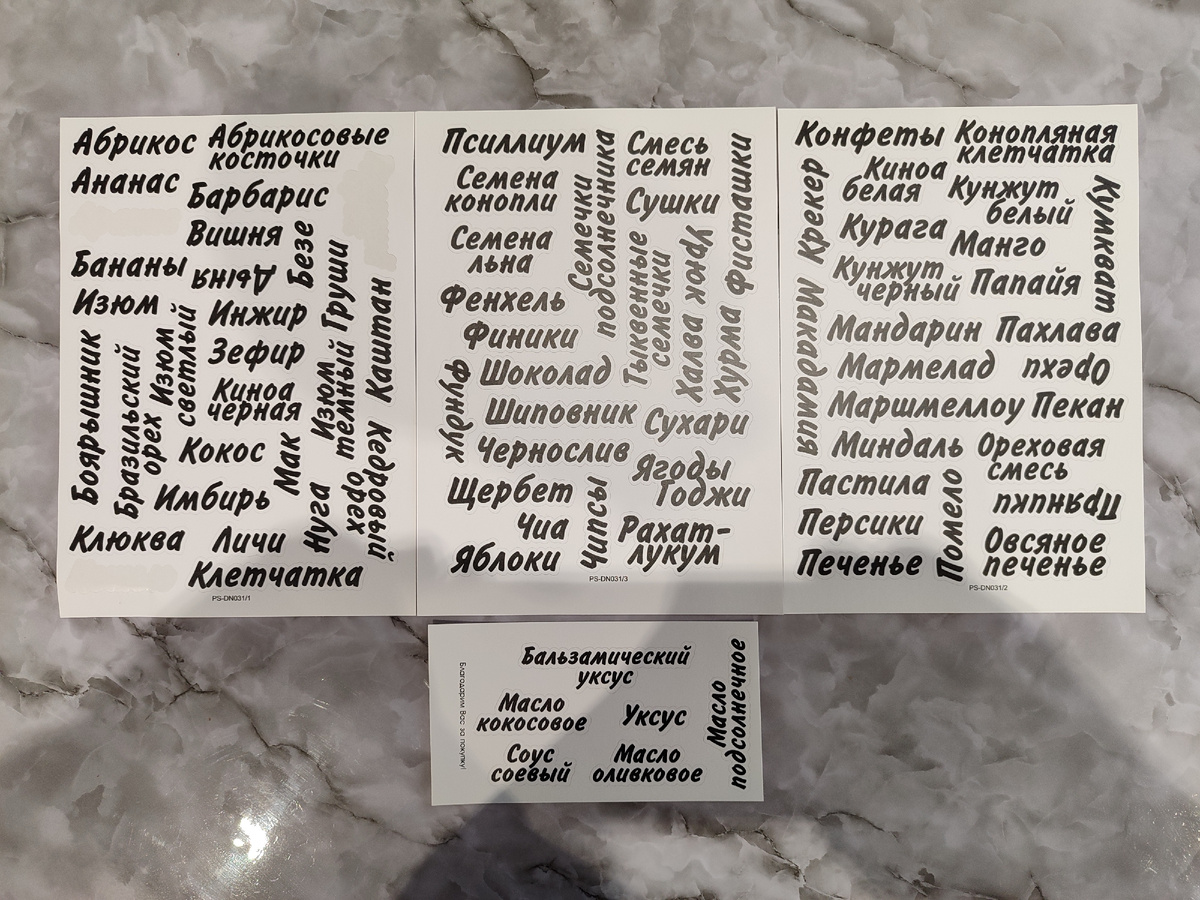 Абрикос
Абрикосовые
косточки
Ананас
Барбарис
Вишня
Безе
Бананы
Дыня
Груши
Изюм
Инжир
Каштан
Боярышник
Бразильский
орех
Изюм
светлый
Зефир
Киноа
чёрная
Изюм
тёмный
Кокос
Мак
Кедровый
орех
Имбирь
Нуга
Клюква
Личи
Клетчатка
PS-DN031/1
Псиллиум
Семечки
подсолнечника
Смесь
семян
Фисташки
Семена
конопли
Сушки
Семена
льна
Тыквенные
семечки
Урюк
Фенхель
Халва
Хурма
Финики
Фундук
Шоколад
Шиповник
Сухари
Чернослив
Ягоды
Годжи
Щербет
Чипсы
Чиа
Рахат-
лукум
Яблоки
PS-DN031/3
Конфеты
Конопляная
клетчатка
Крекер
Киноа
белая
Кунжут
белый
Кумкват
Курага
Манго
Кунжут
черный
Папайя
Макадамия
Мандарин
Пахлава
Мармелад
Орехи
Маршмеллоу
Пекан
Миндаль
Ореховая
смесь
Пастила
Помело
Пряники
Персики
Овсяное
печенье
Печенье
PS-DN031/2
Благодарим Вас за покупку!
Бальзамический
уксус
Масло
подсолнечное
Масло
кокосовое
Уксус
Соус
соевый
Масло
оливковое